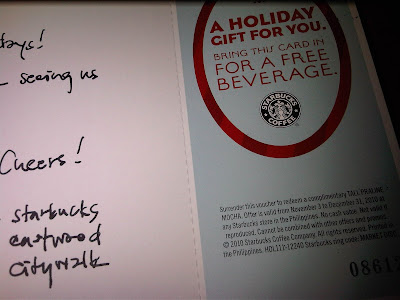 days!
seeing us
Cheers!
starbucks
eastwood
citywalk
A HOLIDAY
GIFT FOR YOU.
BRING THIS CARD IN
FOR A FREE
BEVERAGE.
STARBUCKS
COFFEE
Surrender this voucher to redeem a complimentary TALL PRALINE
MOCHA. Offer is valid from November 3 to December 31, 2010 at
any Starbucks store in the Philippines. No cash value. Not valid if
reproduced. Cannot be combined with other offers and
© 2010 Starbucks Coffee Company. All rights reserved. Printed in
the Philippines. HDL112-12240 Starbucks mng code:
0861